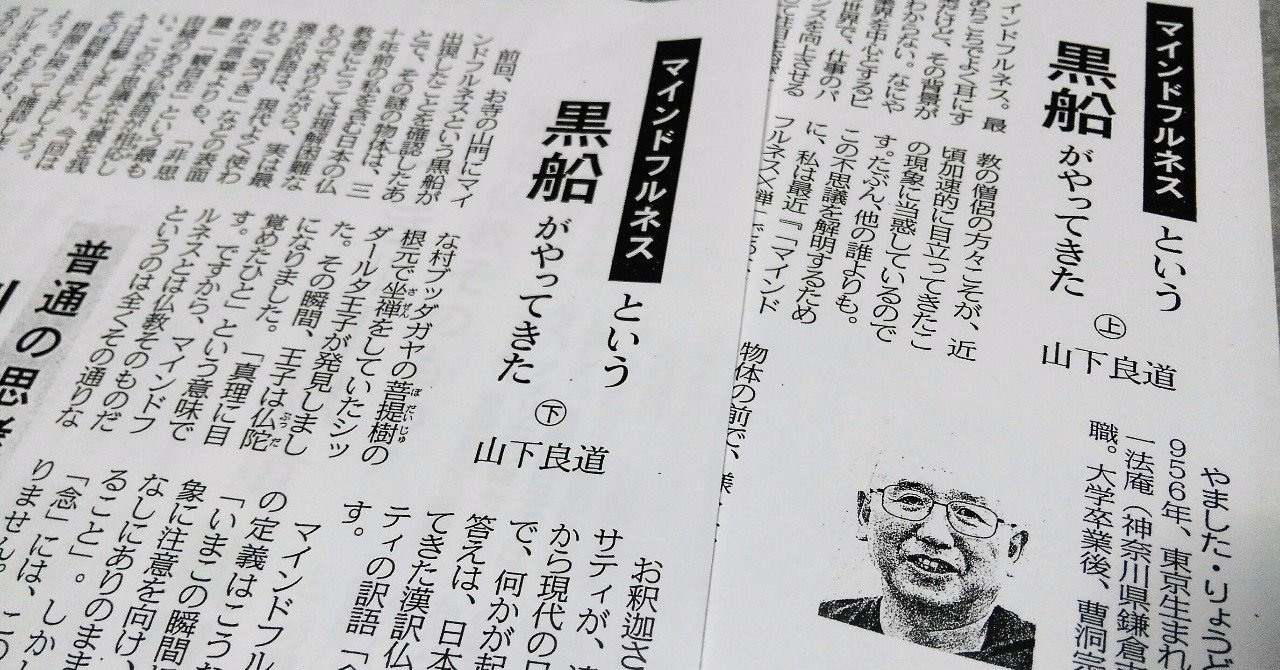 マインドフルネスという
黒船がやってきた
㊤
山下良道
インドフルネス。最
ちこちでよく耳にす
だけど、その背景が
わからない。なにや
業界を中心とするビ
世界で、仕事のパ
ンスを向上させる
教の僧侶の方々こそが、近
頃加速的に目立ってきたこ
の現象に当惑しているので
す。たぶん、他の誰よりも。
この不思議を解明するため
に、私は最近『「マインド
フルネス×禅」
物体の前で、様
やました・りょうど
956年、東京生まれ
一法庵（神奈川県鎌倉市
職。大学卒業後、曹洞宗
マインドフルネスという
黒船がやってきた
㊦
山下良道
前回、お寺の山門にマイ
ンドフルネスという黒船が
出現したことを確認したあ
とで、その謎の物体は、三
十年前の私を含む日本の仏
教者にとっては理解困難な
ものでありながら、実は最
適な訳語は、現代よく使わ
れる「気づき」などの表面
的な言葉よりも、「非思
量」「観自在」という最も
由緒のある仏教語が相応し
い。
な村ブッダガヤの菩提樹の
根元で坐禅をしていたシッ
ダールタ王子が発見しまし
た。その瞬間、王子は仏陀
になりました。「真理に目
覚めたひと」という意味で
す。ですから、マインドフ
ルネスとは仏教そのものだ
というのは全くその通りな
普通の思考
お釈迦さ
サティが、遠
から現代の日
で、何かが起
答えは、日本
てきた漢訳仏
ティの訳語「念
す。
マインドフル
の定義はこうな
「いまこの瞬間
象に注意を向け、
なしにありのまま
ること」。しかし
「念」には、この
りません。